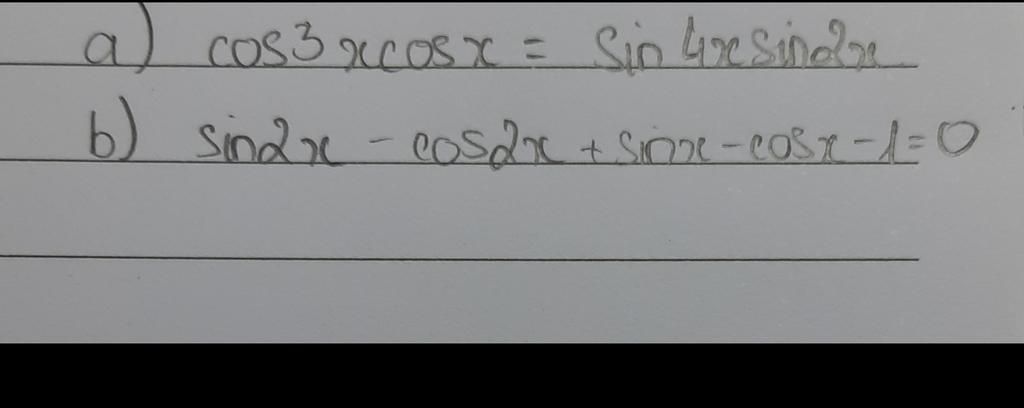 a) cos3xcosx = sin4xsin2x
b) sin2x - cos2x + sinx - cosx - 1 = 0